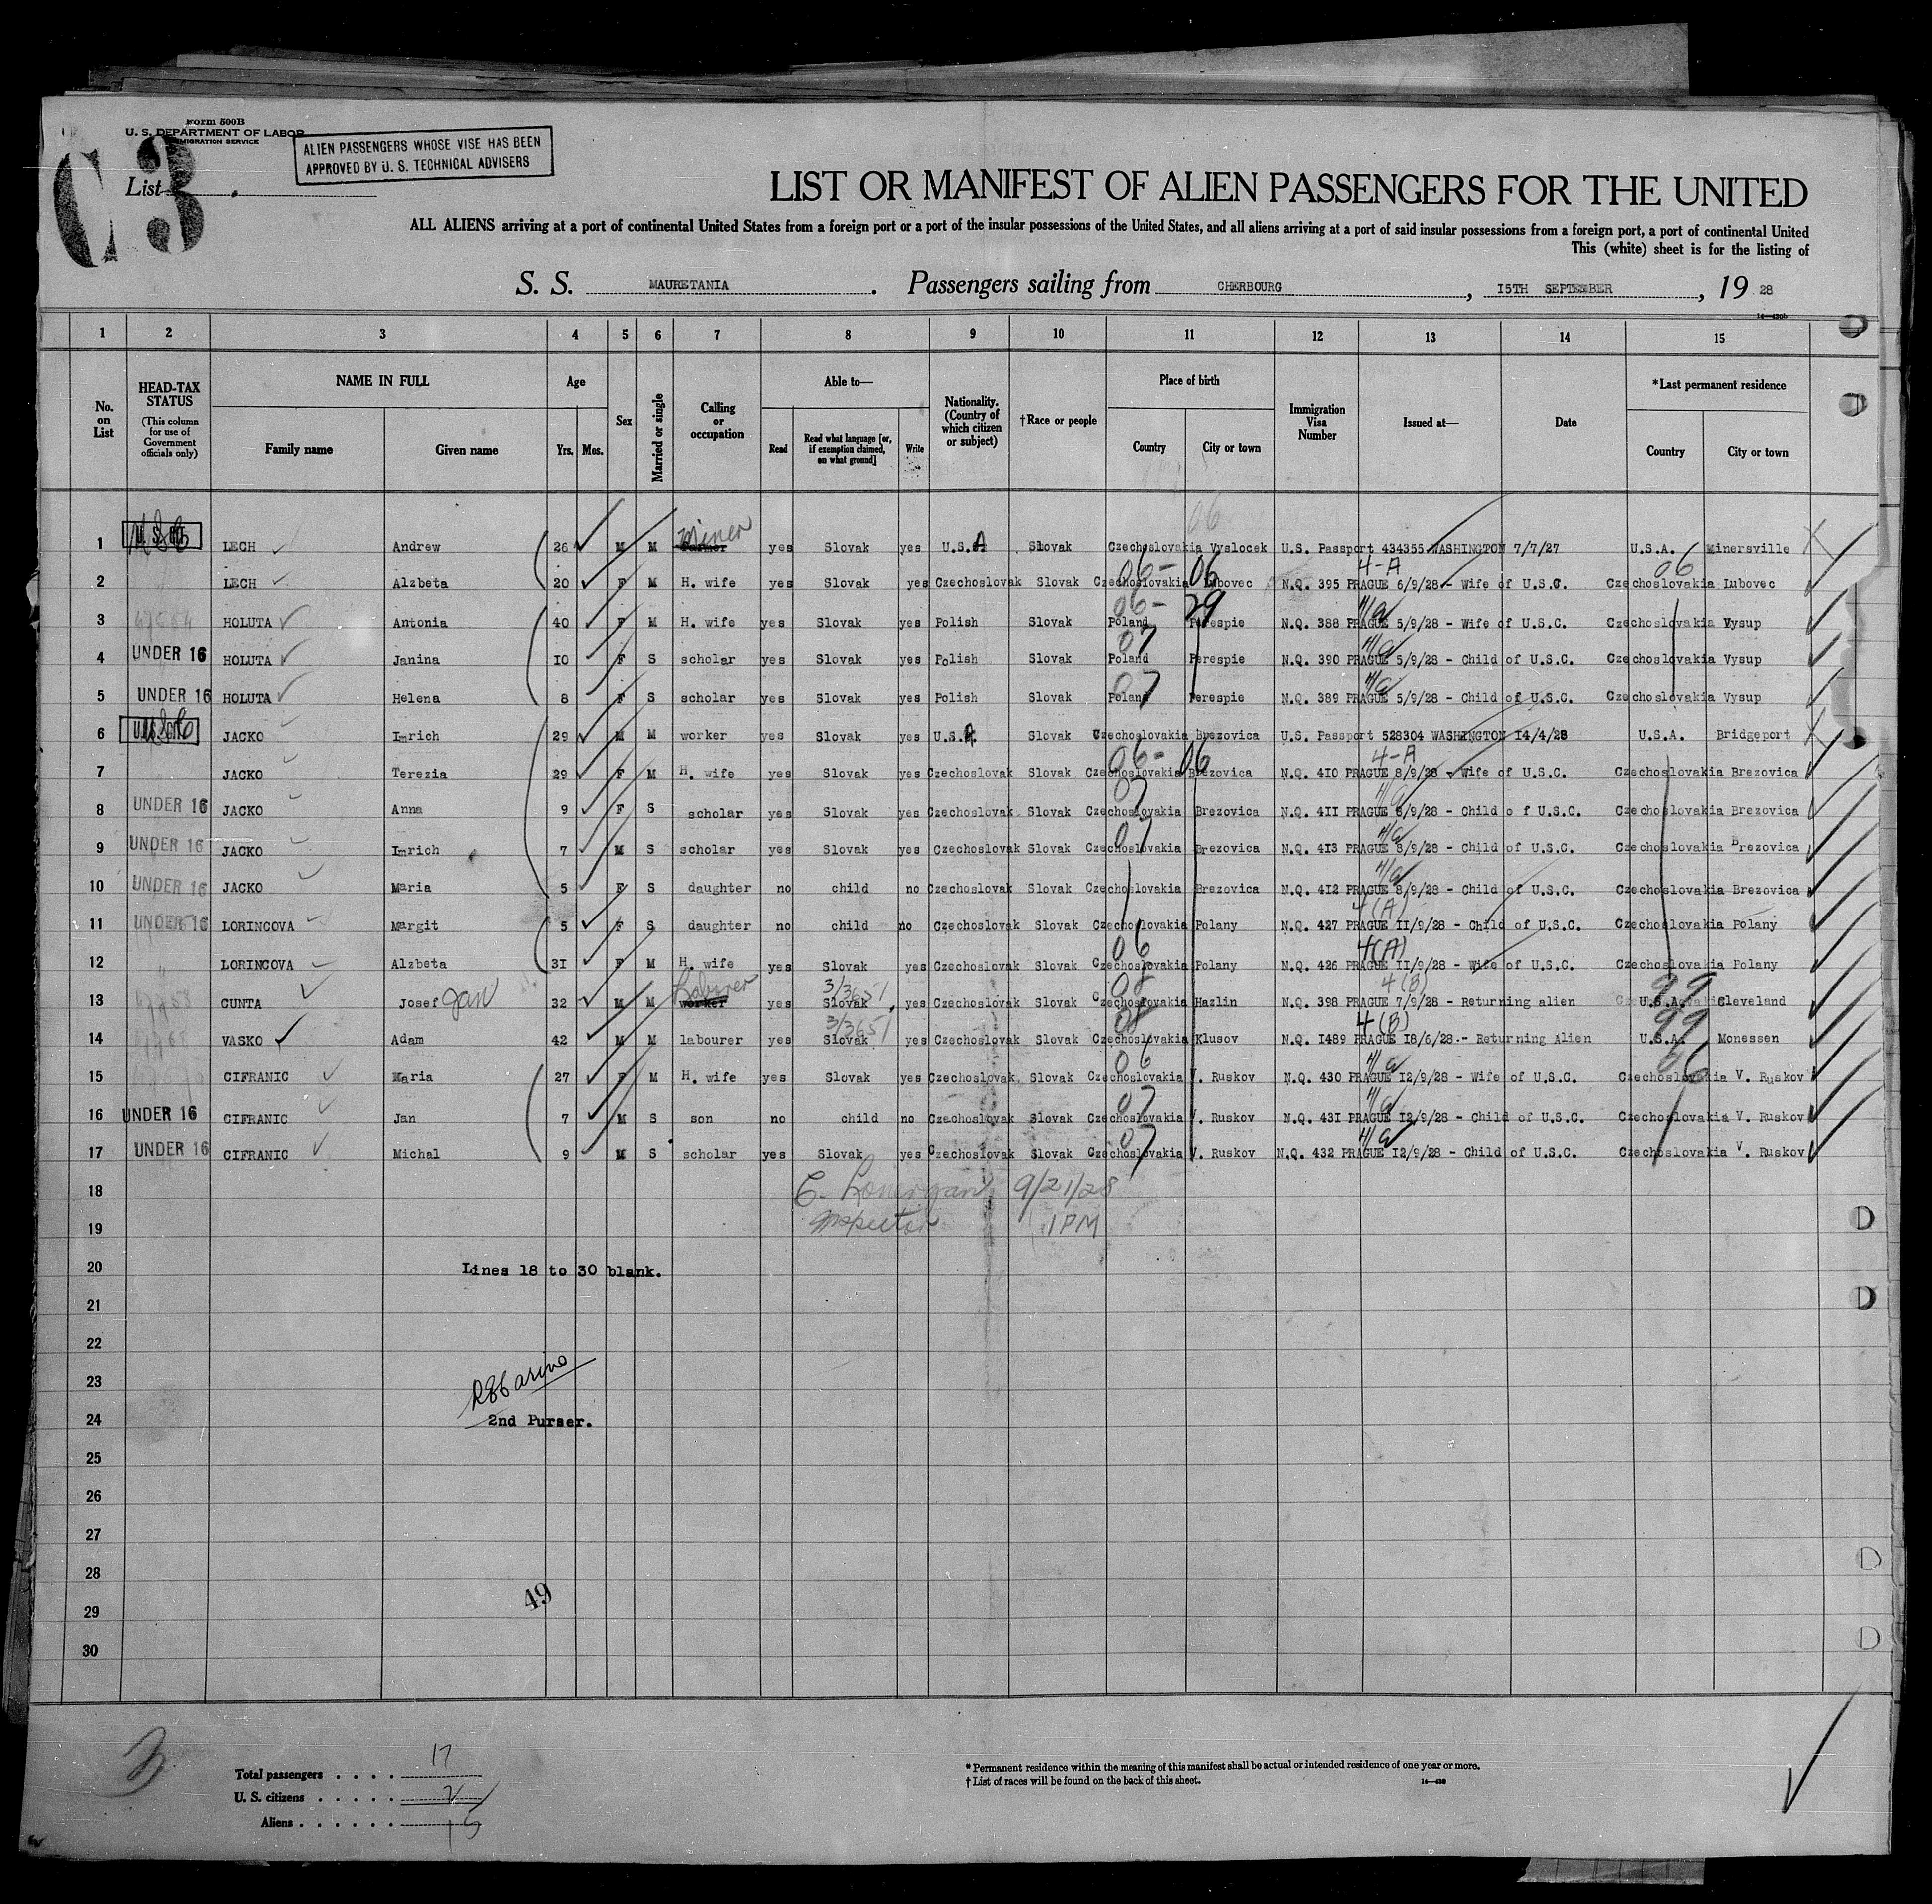 Form 500B
U. S. DEPARTMENT OF LABOR
IMMIGRATION SERVICE
ALIEN PASSENGERS WHOSE VISE HAS BEEN
APPROVED BY U. S. TECHNICAL ADVISERS
C3
List
LIST OR MANIFEST OF ALIEN PASSENGERS FOR THE UNITED
ALL ALIENS arriving at a port of continental United States from a foreign port or a port of the insular possessions of the United States, and all aliens arriving at a port of said insular possessions from a foreign port, a port of continental United
This (white) sheet is for the listing of
S. S. MAURETANIA. Passengers sailing from CHERBOURG, I5TH SEPTEMBER, 19 28
14—430b
1 2 3 4 5 6 7 8 9 10 11 12 13 14 15
No. on List
HEAD-TAX STATUS (This column for use of Government officials only)
NAME IN FULL
Family name
Given name
Age
Yrs. Mos.
Sex
Married or single
Calling or occupation
Able to—
Read
Read what language [or, if exemption claimed, on what ground]
Write
Nationality. (Country of which citizen or subject)
†Race or people
Place of birth
Country
City or town
Immigration Visa Number
Issued at—
Date
*Last permanent residence
Country
City or town
06
1 LECH Andrew 26 M M Miner yes Slovak yes U.S.A Slovak Czechoslovakia Vyslocek U.S. Passport 434355 WASHINGTON 7/7/27 U.S.A. Minersville
06- 06 4-A 06
2 LECH Alzbeta 20 F M H. wife yes Slovak yes Czechoslovak Slovak Czechoslovakia Lubovec N.Q. 395 PRAGUE 6/9/28 - Wife of U.S.C. Czechoslovakia Lubovec
06- 29 4/a
3 HOLUTA Antonia 40 F M H. wife yes Slovak yes Polish Slovak Poland Perespie N.Q. 388 PRAGUE 5/9/28 - Wife of U.S.C. Czechoslovakia Vysup
07 4/a
4 UNDER 16 HOLUTA Janina I0 F S scholar yes Slovak yes Polish Slovak Poland Perespie N.Q. 390 PRAGUE 5/9/28 - Child of U.S.C. Czechoslovakia Vysup
07 4/a
5 UNDER 16 HOLUTA Helena 8 F S scholar yes Slovak yes Polish Slovak Poland Perespie N.Q. 389 PRAGUE 5/9/28 - Child of U.S.C. Czechoslovakia Vysup
6 JACKO Imrich 29 M M worker yes Slovak yes U.S.A Slovak Czechoslovakia Brezovica U.S. Passport 528304 WASHINGTON I4/4/28 U.S.A. Bridgeport
06- 06 4-A
7 JACKO Terezia 29 F M H. wife yes Slovak yes Czechoslovak Slovak Czechoslovakia Brezovica N.Q. 4I0 PRAGUE 8/9/28 - Wife of U.S.C. Czechoslovakia Brezovica
07 4/a
8 UNDER 16 JACKO Anna 9 F S scholar yes Slovak yes Czechoslovak Slovak Czechoslovakia Brezovica N.Q. 4II PRAGUE 8/9/28 - Child o f U.S.C. Czechoslovakia Brezovica
07 4/a
9 UNDER 16 JACKO Imrich 7 M S scholar yes Slovak yes Czechoslovak Slovak Czechoslovakia Brezovica N.Q. 4I3 PRAGUE 8/9/28 - Child of U.S.C. Czechoslovakia Brezovica
4/a
10 UNDER 16 JACKO Maria 5 F S daughter no child no Czechoslovak Slovak Czechoslovakia Brezovica N.Q. 4I2 PRAGUE 8/9/28 - Child of U.S.C. Czechoslovakia Brezovica
4(A)
11 UNDER 16 LORINCOVA Margit 5 F S daughter no child no Czechoslovak Slovak Czechoslovakia Polany N.Q. 427 PRAGUE II/9/28 - Child of U.S.C. Czechoslovakia Polany
06 4(A)
12 LORINCOVA Alzbeta 3I F M H. wife yes Slovak yes Czechoslovak Slovak Czechoslovakia Polany N.Q. 426 PRAGUE II/9/28 - Wife of U.S.C. Czechoslovakia Polany
Laborer 3/3651 08 4(B) 99
13 CUNTA Josef Jan 32 M M worker yes Slovak yes Czechoslovak Slovak Czechoslovakia Hazlin N.Q. 398 PRAGUE 7/9/28 - Returning alien U.S.A. Cleveland
3/3651 08 4(B) 99
14 VASKO Adam 42 M M labourer yes Slovak yes Czechoslovak Slovak Czechoslovakia Klusov N.Q. I489 PRAGUE I8/6/28.- Returning Alien U.S.A. Monessen
06 4/a 06
15 CIFRANIC Maria 27 F M H. wife yes Slovak yes Czechoslovak Slovak Czechoslovakia V. Ruskov N.Q. 430 PRAGUE I2/9/28 - Wife of U.S.C. Czechoslovakia V. Ruskov
07 4/a
16 UNDER 16 CIFRANIC Jan 7 M S son no child no Czechoslovak Slovak Czechoslovakia V. Ruskov N.Q. 43I PRAGUE I2/9/28 - Child of U.S.C. Czechoslovakia V. Ruskov
07 4/a
17 UNDER 16 CIFRANIC Michal 9 M S scholar yes Slovak yes Czechoslovak Slovak Czechoslovakia V. Ruskov N.Q. 432 PRAGUE I2/9/28 - Child of U.S.C. Czechoslovakia V. Ruskov
18 Lonergan 9/21/28
19 Inspector 1PM
20 Lines 18 to 30 blank.
21
22
23
24 2nd Purser.
25
26
27
28
49
29
30
3
Total passengers . . . . 17
U. S. citizens . . . . . 2
Aliens . . . . . . 15
* Permanent residence within the meaning of this manifest shall be actual or intended residence of one year or more.
† List of races will be found on the back of this sheet.
14—430